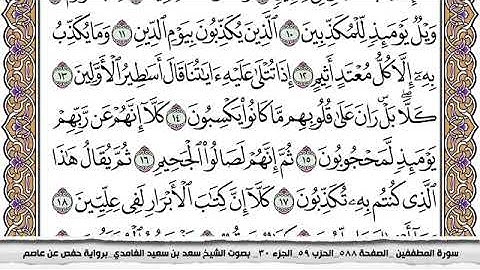 وَيْلٌ يَوْمَئِذٍ لِّلْمُكَذِّبِينَ ١٠ ٱلَّذِينَ يُكَذِّبُونَ بِيَوْمِ ٱلدِّينِ ١١ وَمَا يُكَذِّبُ
بِهِۦٓ إِلَّا كُلُّ مُعْتَدٍ أَثِيمٍ ١٢ إِذَا تُتْلَىٰ عَلَيْهِ ءَايَٰتُنَا قَالَ أَسَٰطِيرُ ٱلْأَوَّلِينَ ١٣
كَلَّا ۖ بَلْ ۜ رَانَ عَلَىٰ قُلُوبِهِم مَّا كَانُوا۟ يَكْسِبُونَ ١٤ كَلَّآ إِنَّهُمْ عَن رَّبِّهِمْ
يَوْمَئِذٍ لَّمَحْجُوبُونَ ١٥ ثُمَّ إِنَّهُمْ لَصَالُوا۟ ٱلْجَحِيمِ ١٦ ثُمَّ يُقَالُ هَٰذَا
ٱلَّذِى كُنتُم بِهِۦ تُكَذِّبُونَ ١٧ كَلَّآ إِنَّ كِتَٰبَ ٱلْأَبْرَارِ لَفِى عِلِّيِّينَ ١٨
سورة المطففين _ الصفحة ٥٨٨_ الحزب ٥٩_ الجزء ٣٠_ بصوت الشيخ سعد بن سعيد الغامدي _برواية حفص عن عاصم